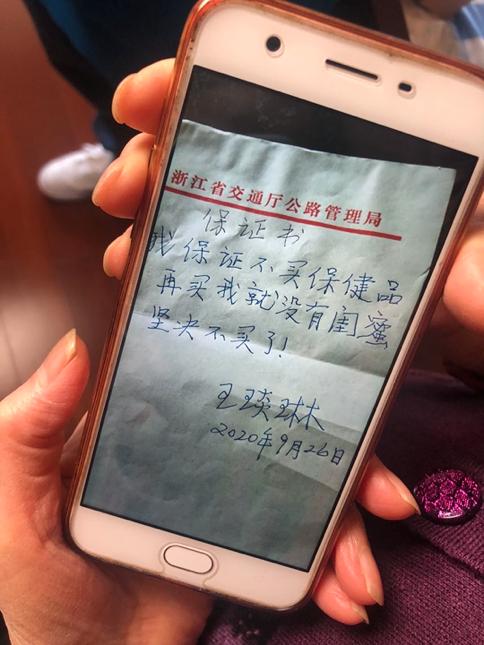 浙江省交通厅公路管理局
保证书
我保证不买保健品
再买我就没有闺蜜
坚决不买了!
王琰琳
2020年9月26日